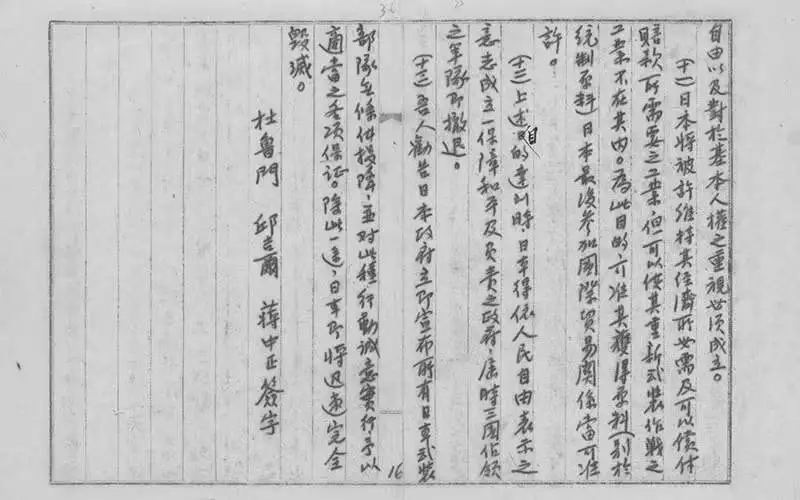 自由以及對於基本人權之重視必須成立。
(十一)日本將被許維持其經濟所必需及可以償付
賠款所需要之工業,但可以使其重新武裝作戰之
工業不在其內。為此目的,可准其獲得原料(別於
統制原料)日本最後參加國際貿易關係當可准
許。
(十二)上述目的達到時日本得依人民自由表示之
意志成立一保障和平及負責之政府,屆時三國佔領
之軍隊即撤退。
(十三)吾人勸告日本政府立即宣布所有日本武裝
部隊無條件投降,並对此種行動誠意實行予以
適當之各項保証。除此一途,日本即將迅速完全
毀滅。
杜魯門 邱吉爾 蔣中正簽字
16